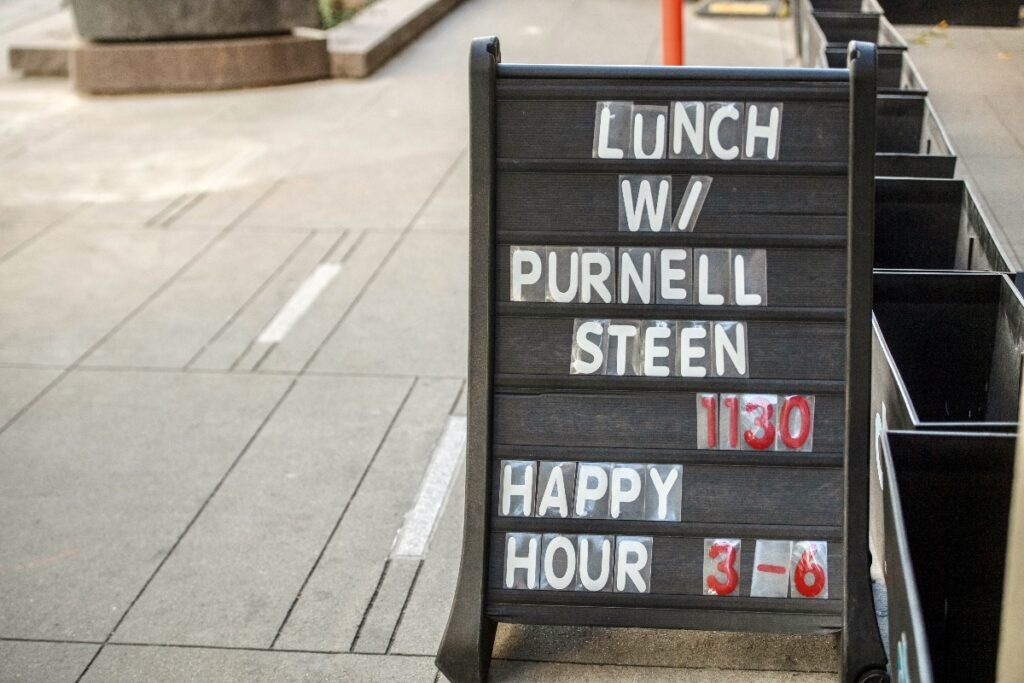 LUNCH
W/
PURNELL
STEEN
1130
HAPPY
HOUR 3-6